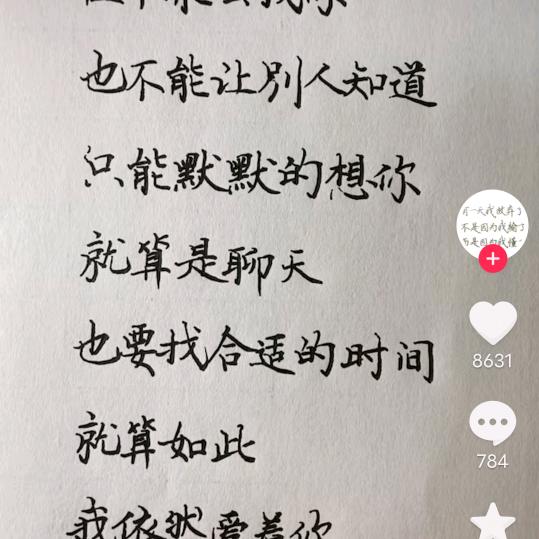 也不能让别人知道
只能默默的想你
就算是聊天
也要找合适的时间
就算如此
我依然爱着你
有一天我放弃了
不是因为我输了
而是因为我懂
8631
784